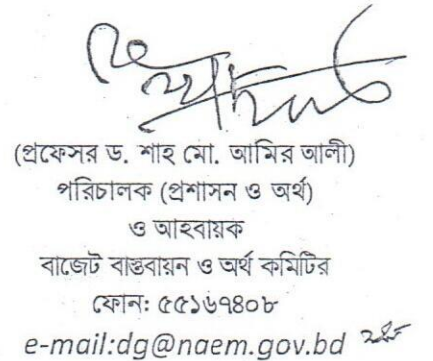 (প্রফেসর ড. শাহ মো. আমির আলী)
পরিচালক (প্রশাসন ও অর্থ)
ও আহবায়ক
বাজেট বাস্তবায়ন ও অর্থ কমিটির
ফোনঃ ৫৫১৬৭৪০৮
e-mail:dg@naem.gov.bd